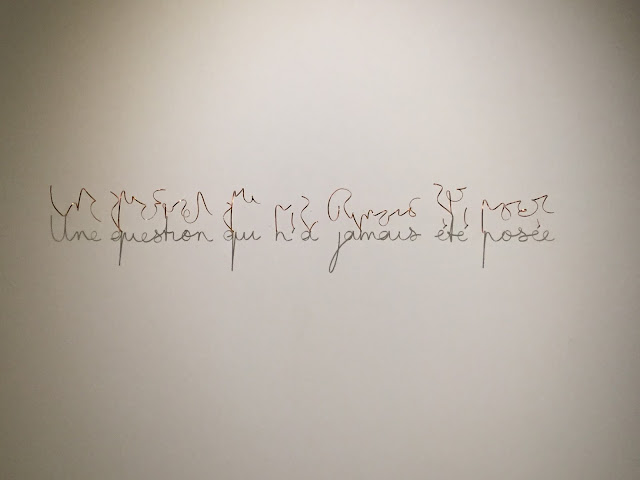 Une question qui n'a jamais été posée